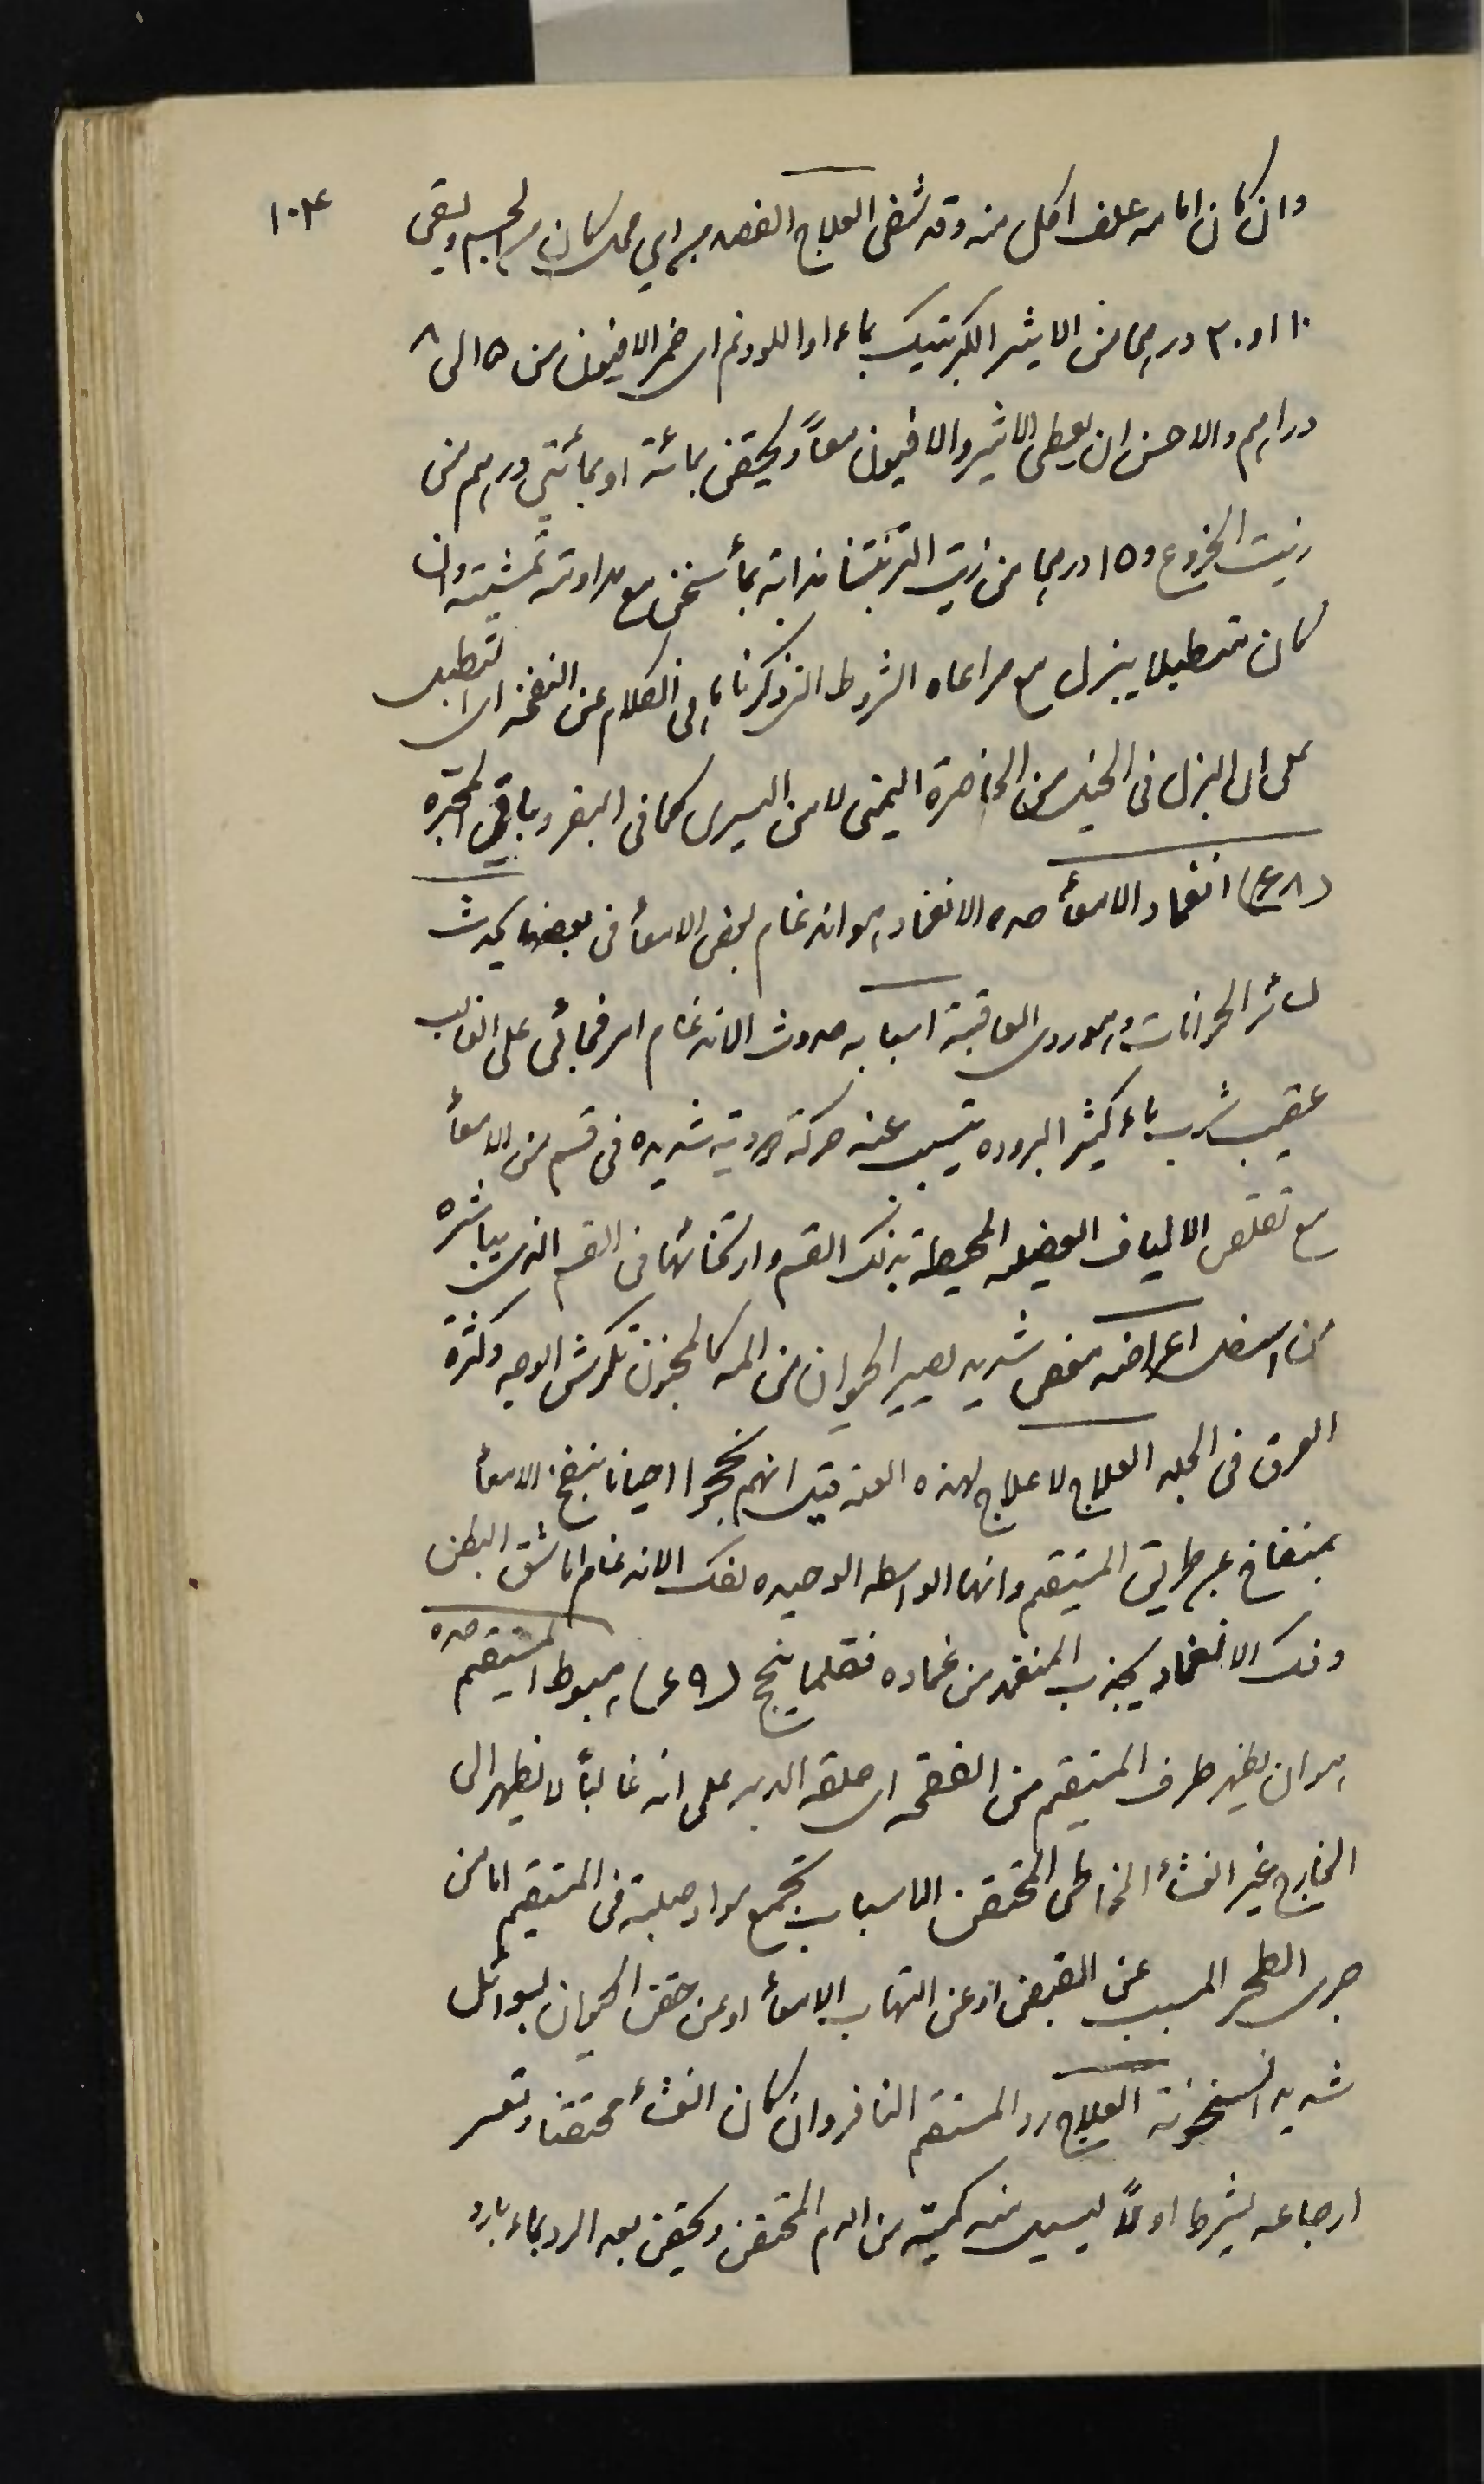 ١٠٣
وان كان امامه علف اكل منه وقد شفى العلاج الفصد من اي محل كان من الجسم ويسقى
١٠ او ٣٠ درهما من الايثير الكبريتيك بماء او اللودنم اى خمر الافيون من ١٥ الى ٨
دراهم والاحسن ان يعطى الايثير والافيون معاً ويحقن بمائة او بمائتي درهم من
زيت الخروع و ١٥ درهما من زيت التربنتنا مذابة بمأ سخن مع مداومة تمشيته وان
كان تطبيلا يبزل مع مراعاه الشروط التى ذكرناها فى الكلام عن النفخه اى التطبيل
على ان البزل فى الخيل من الخاصرة اليمنى لا من اليسرى كما فى البقر وباقي المجتره
(٤٨) انغماد الامعأ حده الانغماد هو اندغام بعض الامعأ فى بعضها يحدث
لسائر الحيوانات وهو ردى العاقبة اسبابه حدوث الاندغام امر فجائى على الغالب
عقيب شرب ماء كثير البروده يتسبب عنه حركة دودية شديده فى قسم من الامعأ
مع تقلص الالياف العضليه المحيطة بذلك القسم وارتخائها فى القسم الذى يباشره
من اسفل اعراضه مغص شديد يصير الحيوان من المه كالمجنون تكرش الوجه وكثرة
العرق فى الجلد العلاج لا علاج لهذه العله قيل انهم نجحوا احيانا بنفخ الامعأ
بمنفاخ عن طريق المستقيم وانها الواسطه الوحيده لفك الاندغام اما شق البطن
وفك الانغماد بجذب المنغمد من غماده فقلما ينجح (٤٩) هبوط المستقيم حده
هو ان يظهر طرف المستقيم من الفقحه اى حلقه الدبر على انه غالباً لا يظهر الى
الخارج غير الغشأ المخاطى المحتقن الاسباب تجمع مواد صلبة فى المستقيم اما من
جرى الطحر المسبب عن القبض او عن التهاب الامعأ او عن حقن الحيوان بسوائل
شديد السخونة العلاج رد المستقيم النافر وان كان الغشأ محتقنا وتعسر
ارجاعه يشرط اولاً ليسيل منه كمية من الدم المحتقن ويحقن بعد الرد بماء بارد